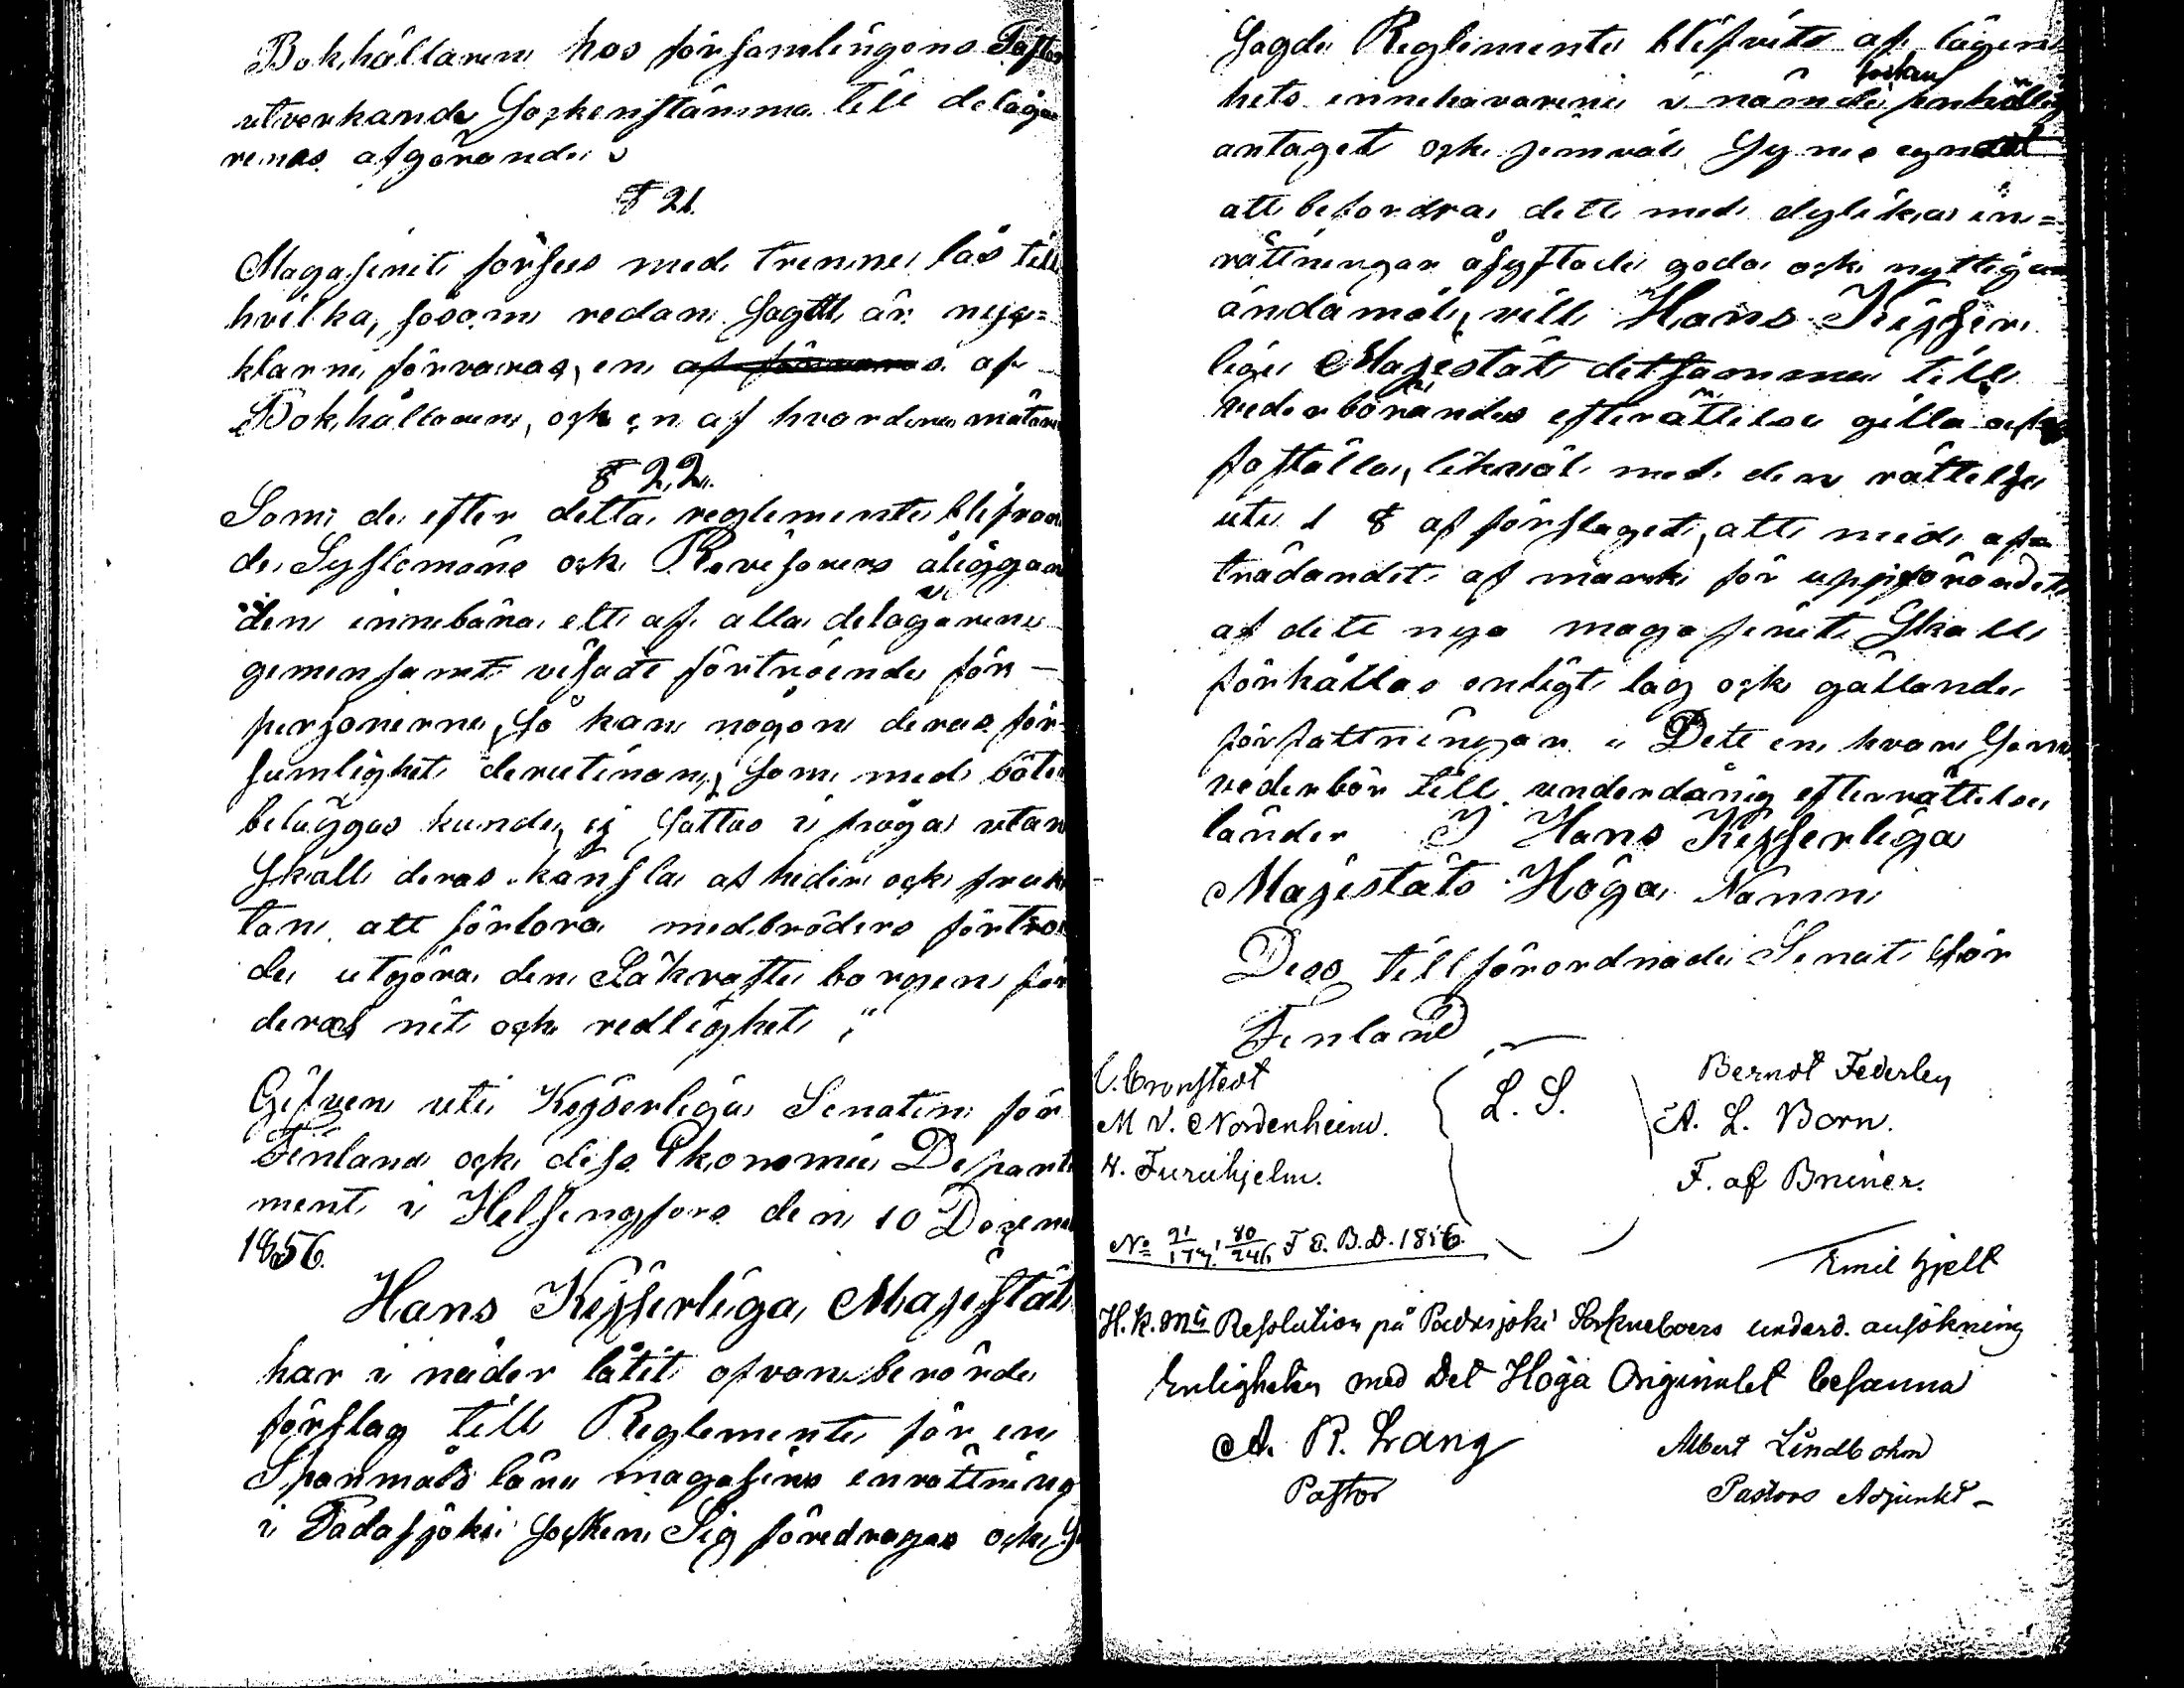 Bokhållaren hos församlingens Pastor
utverkande Sockenstämma till delega
renas afgörande
§ 21.
Magasinet förses med trenne lås till
hvilka, såsom redan sagdt är nyc=
klarne förvaras, en af förvaras af
Bokhållaren, och en af hvardera mätare
§ 22.
Som de efter detta reglemente blifvan
de Sysslomäns och Revisorers åliggan
den innebära ett af alla delägarene
gemensamt visadt förtroende för
personerne, så kan någon deras för=
sumlighet derutinnan, som med böter
beläggas kunde, ej sättas i fråga utan
Skall deras känsla af heder och fruk
tan att förlora medbröders förtroen
de utgöra den Säkraste borgen för
deras nit och redlighet "
Gifven uti Kejserliga Senaten för
Finland och dess Ekonomie Departe
ment i Helsingfors den 10 Decem
1856.
Hans Kejserliga Majestät
har i nåder låtit ofvanberörde
förslag till Reglemente för en
Spanmåls låne magasins inrättning
i Padasjoki Socken Sig föredragas och
Sagde Reglemente blifvit af lägen
hets innehavarene i nämde socken enhällig
antaget och jemväl Synes egnadt
att befordra dett med dylika in=
rättningar åsyftade goda och nyttiga
ändamål, vill Hans Kejser
liga Majestät detsamma till
vederbörandes efterrättelse gilla och
fastställa, likväl med den rättelse
uti 1 § af förslaget, att med af=
trädandet af mark för uppförandet
af dett nya magasinet Skall
förhållas enligt lag och gällande
författningar. Dett en hvar som
vederbör till underdånig efterrättelse
länder I Hans Kejserliga
Majestäts Höga Namn
Dess tillförordnade Senat för
Finland
C. Cronstedt
L. S.
Berndt Federley
M V. Nordenheim.
A. L. Born.
H. Furuhjelm.
F. af Bruner.
No 21/174. 80/246 F E. B. D. 1856.
Emil Hjelt
H. K. Mts Resolution på Padasjoki Sockneboers underd. ansökning
Enligheten med Det Höga Originalet besanna
A. R. Lang
Albert Lindbohm
Pastor
Pastors Adjunkt